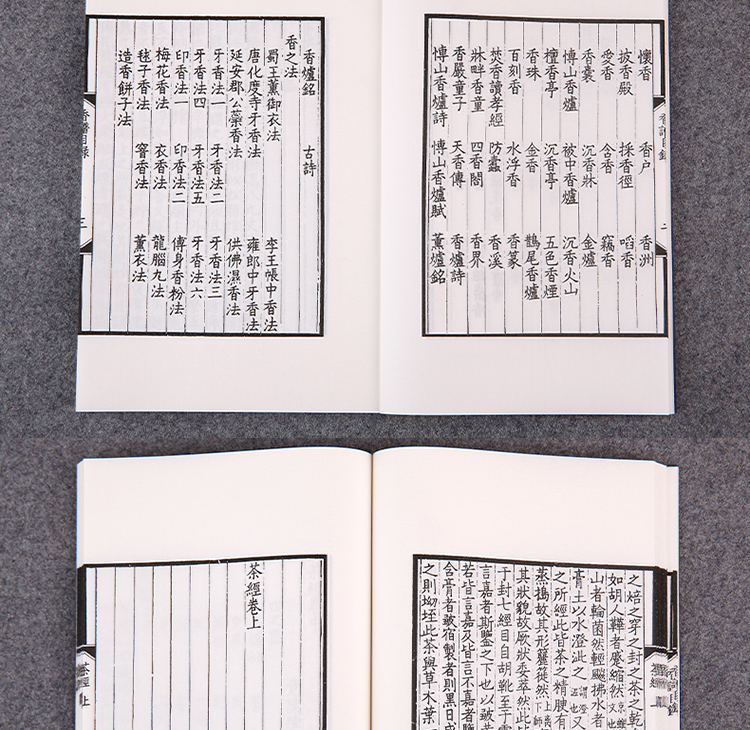 香譜目錄 二
懷香 香户 香洲
披香殿 採香徑 啗香
愛香 含香 竊香
香囊 沉香牀 金爐
博山香爐 被中香爐 沉香火山
檀香亭 沉香亭 五色香煙
香珠 金香 鵲尾香爐
百刻香 水浮香 香篆
焚香讀孝經 防蠹 香溪
牀畔香童 四香閣 香界
香嚴童子 天香傳 香爐詩
博山香爐詩 博山香爐賦 薰爐銘
香爐銘 古詩
香之法
蜀王薰御衣法 李王帳中香法
唐化度寺牙香法 雍郎中牙香法
延安郡公蘂香法 供佛濕香法
牙香法一 牙香法二 牙香法三
牙香法四 牙香法五 牙香法六
印香法一 印香法二 傅身香粉法
梅花香法 衣香法 龍腦丸法
毬子香法 窨香法 薰衣法
造香餅子法
香譜目錄 三
之焙之穿之封之茶之乾
如胡人鞾者蹙縮然
山者輪菌然輕飈拂水者
膏土以水澄泚之 又
之所經此皆茶之精腴有
蒸搗故其形籭簁然
其狀貌故厥狀委萃然此
于封七經目自胡靴至于
言嘉者斯鑒之下也以皺黃
若皆言嘉及皆言不嘉者鑒
含膏者皺宿製者則黑日成
之則坳垤此茶與草木葉一
茶經卷上
茶經 上